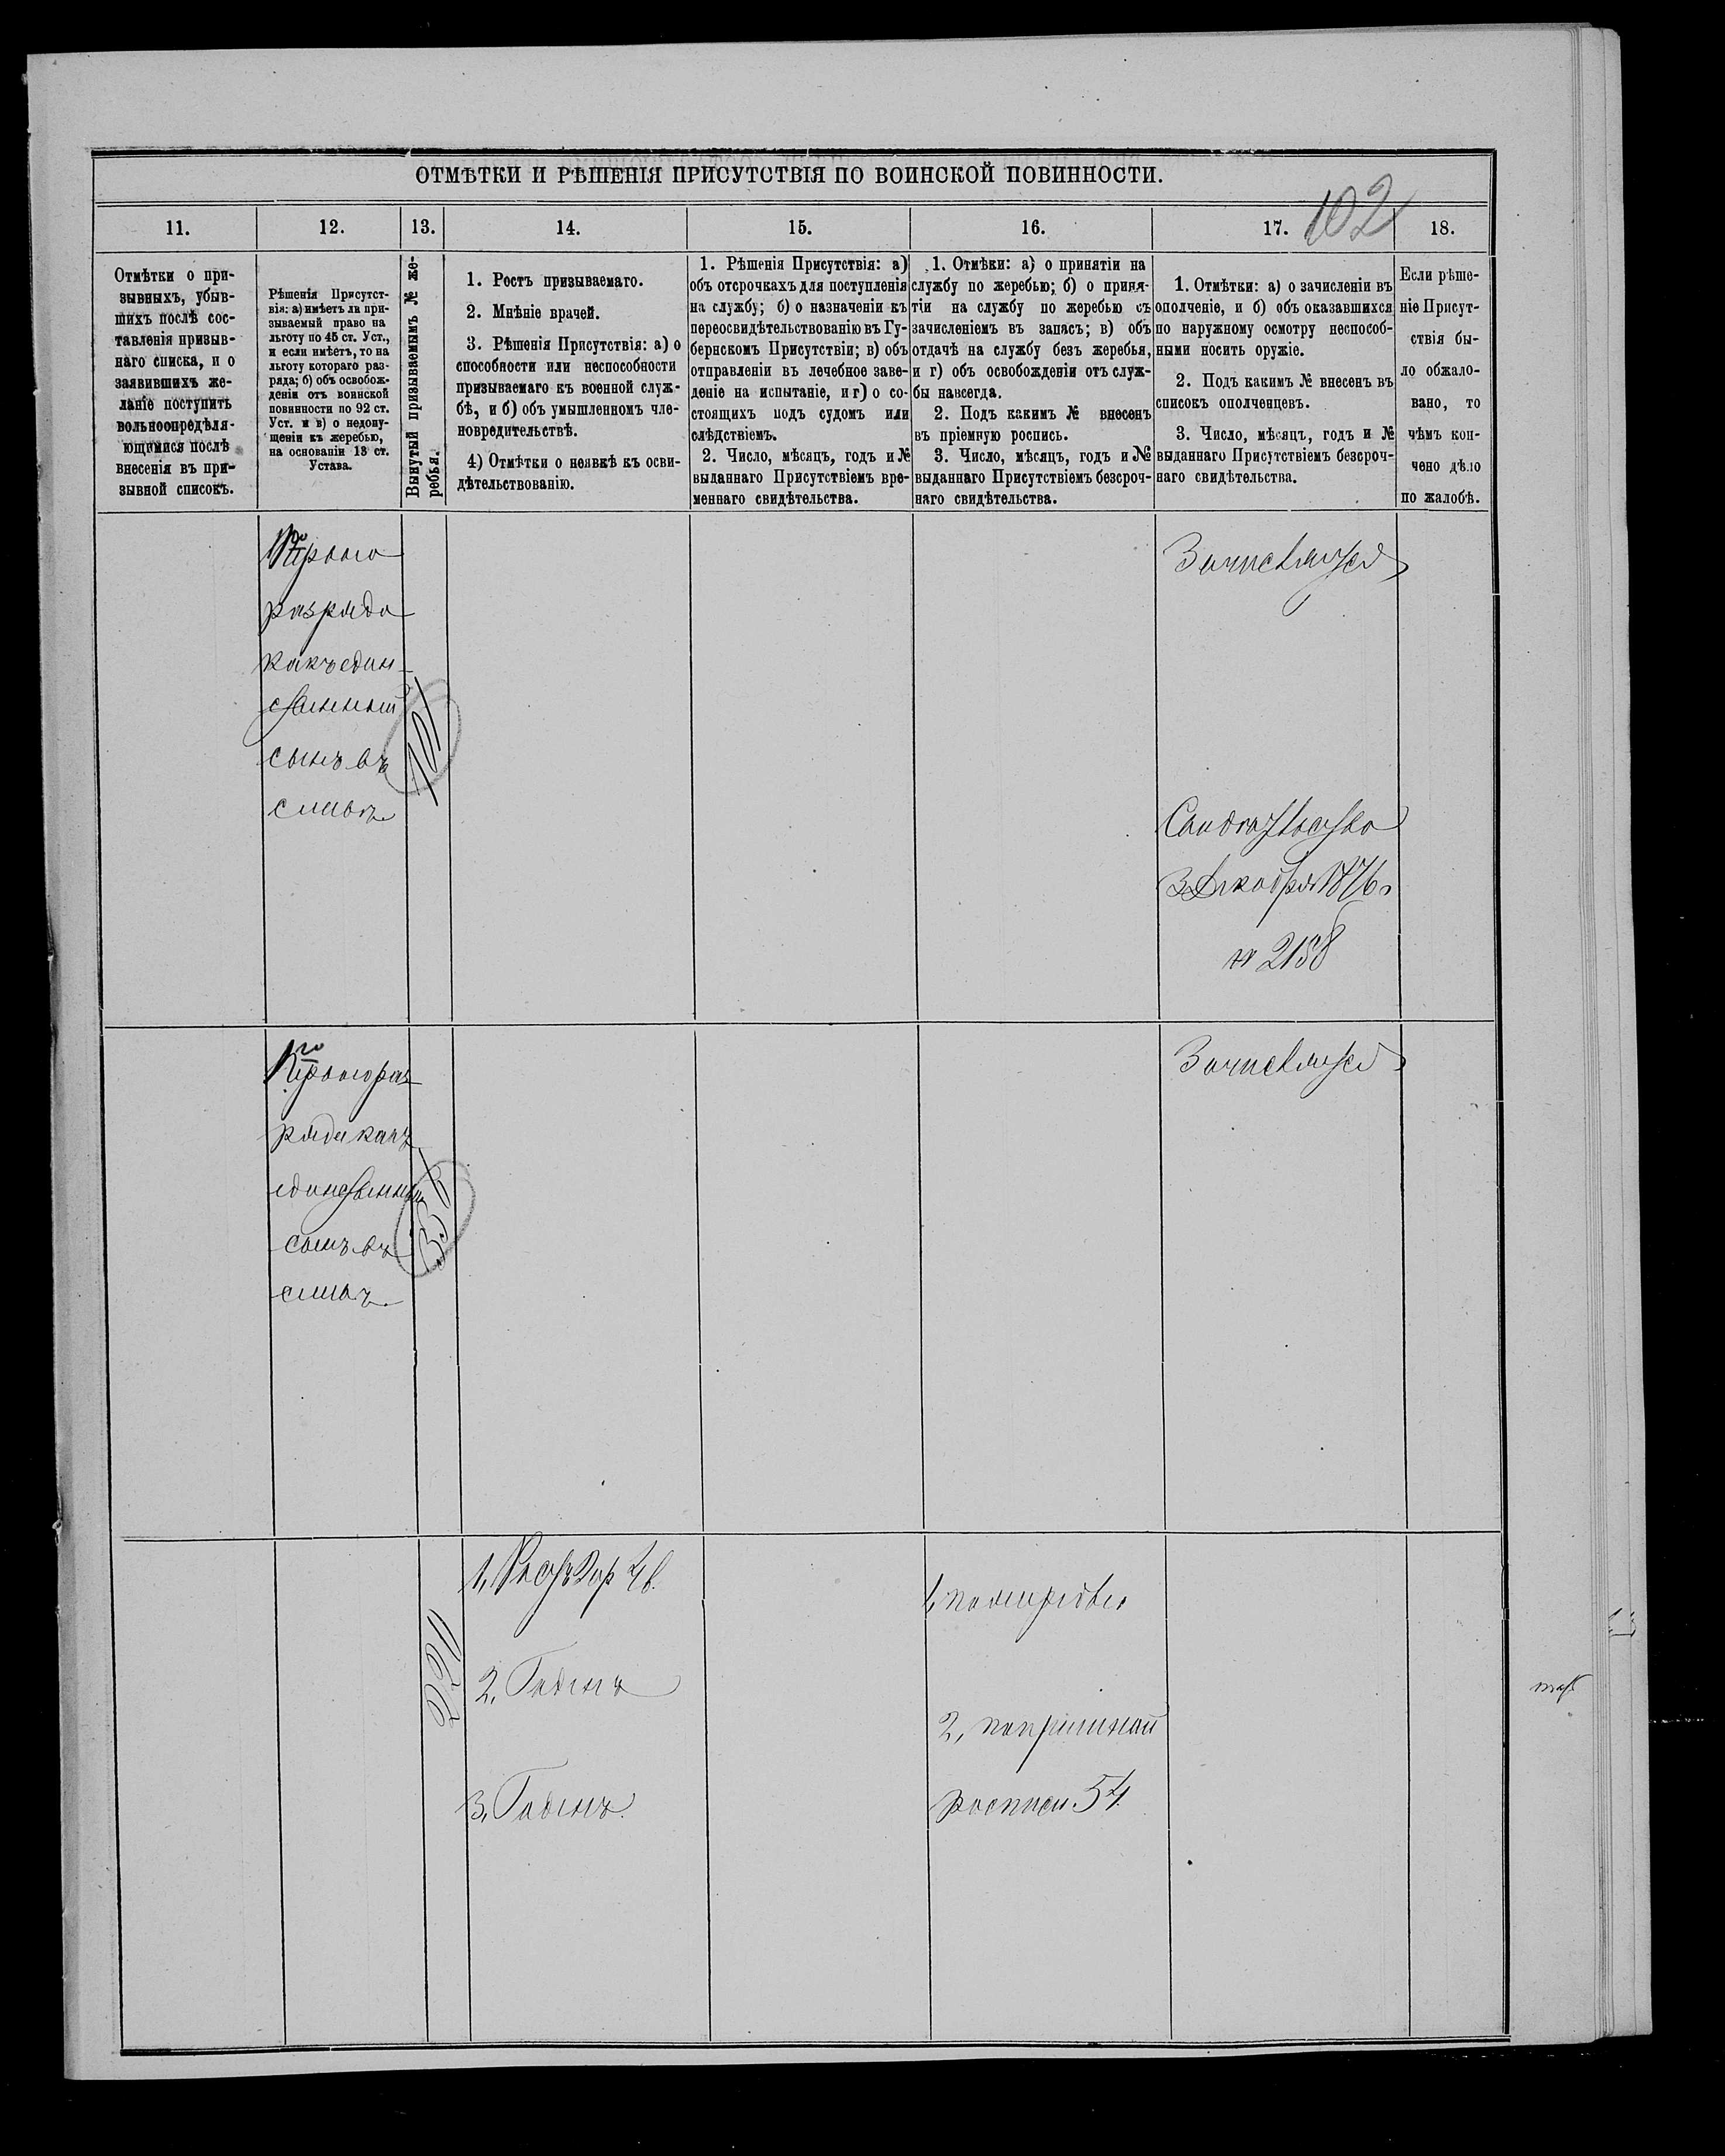 ОТМѢТКИ И РѢШЕНІЯ ПРИСУТСТВІЯ ПО ВОИНСКОЙ ПОВИННОСТИ.
102
11.
12.
13.
14.
15.
16.
17.
18.
Отмѣтки о при-
зывныхъ, убыв-
шихъ послѣ сос-
тавленія призыв-
наго списка, и о
заявившихъ же-
ланіе поступить
вольноопредѣля-
ющимися послѣ
внесенія въ при-
зывной списокъ.
Рѣшенія Присутст-
вія: а) имѣетъ ли при-
зываемый право на
льготу по 45 ст. Уст.,
и если имѣетъ, то на
льготу котораго раз-
ряда; б) объ освобож-
деніи отъ воинской
повинности по 92 ст.
Уст. и в) о недопу-
щеніи къ жеребью,
на основаніи 13 ст.
Устава.
Вынутый призываемымъ № же-
ребья.
1. Ростъ призываемаго.
2. Мнѣніе врачей.
3. Рѣшенія Присутствія: а) о
способности или неспособности
призываемаго къ военной служ-
бѣ, и б) объ умышленномъ чле-
новредительствѣ.
4) Отмѣтки о неявкѣ къ осви-
дѣтельствованію.
1. Рѣшенія Присутствія: а)
объ отсрочкахъ для поступленія
на службу; б) о назначеніи къ
переосвидѣтельствованію въ Гу-
бернскомъ Присутствіи; в) объ
отправленіи въ лечебное заве-
деніе на испытаніе, и г) о со-
стоящихъ подъ судомъ или
слѣдствіемъ.
2. Число, мѣсяцъ, годъ и №
выданнаго Присутствіемъ вре-
меннаго свидѣтельства.
1. Отмѣки: а) о принятіи на
службу по жеребью; б) о приня-
тіи на службу по жеребью съ
зачисленіемъ въ запасъ; в) объ
отдачѣ на службу безъ жеребья,
и г) объ освобожденіи отъ служ-
бы навсегда.
2. Подъ какимъ № внесенъ
въ пріемную роспись.
3. Число, мѣсяцъ, годъ и №
выданнаго Присутствіемъ безсроч-
наго свидѣтельства.
1. Отмѣтки: а) о зачисленіи въ
ополченіе, и б) объ оказавшихся
по наружному осмотру неспособ-
ными носить оружіе.
2. Подъ какимъ № внесенъ въ
списокъ ополченцевъ.
3. Число, мѣсяцъ, годъ и №
выданнаго Присутствіемъ безсроч-
наго свидѣтельства.
Если рѣше-
ніе Присут-
ствія бы-
ло обжало-
вано, то
чѣмъ кон-
чено дѣло
по жалобѣ.
разряда
какъ един-
ственный
сынъ въ
семьѣ
101
Зачисляется
3 Декабря 1876 г
№ 2158
ряда какъ
единственный
сынъ въ
семьѣ.
336
Зачисляется
220
2. Годенъ
3. Годенъ.
1, по жеребью
2, по приемной
росписи 54.